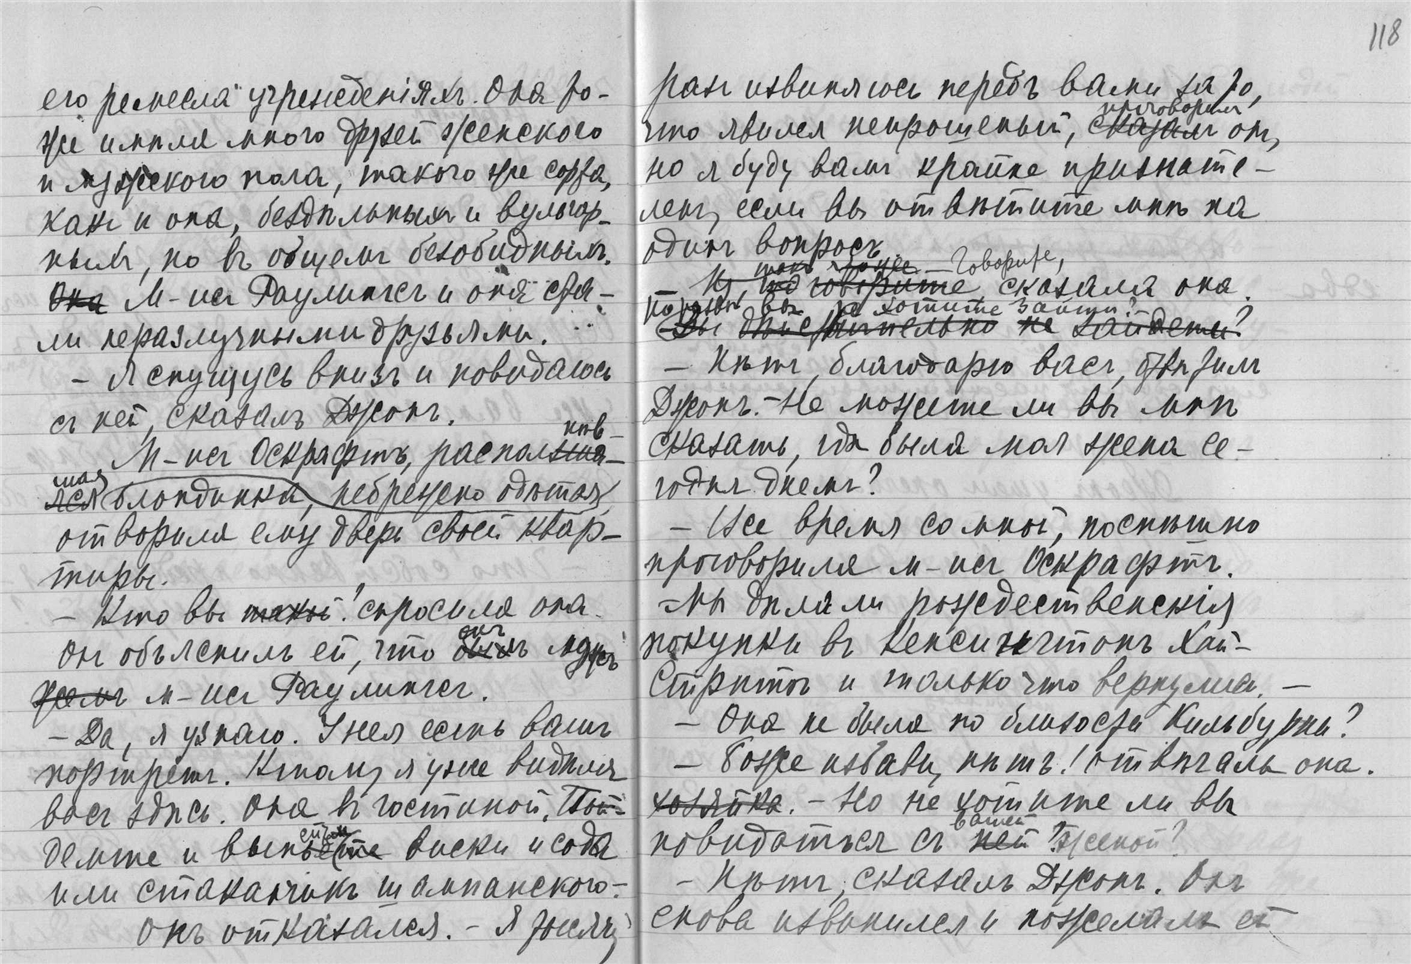 его ремесла учрежденіяхъ. Она то-
же имѣла много друзей женскаго
и мужского пола, такого же сорта,
какъ и она, бездѣльныхъ и вульгар-
ныхъ, но въ общемъ безобиднымъ.
Она М-исъ Раулингсъ и она ста-
ли неразлучными друзьями.
– Я спущусь внизъ и повидаюсь
съ ней, сказалъ Джонъ.
нѣв-
М-исъ Оскрафтъ, располнѣла-
шая
яся блондинка, небрежно одѣтая,
отворила ему дверь своей квар-
тиры.
– Кто вы такой? спросила она.
онъ
Он объяснилъ ей, что былъ мужъ
жемъ м-исъ Раулингсъ.
– Да, я узнаю. У нея есть вашъ
портретъ. К тому я уже видѣла
васъ здѣсь. Она въ гостиной. Пой-
демте и выпьемте виски и сода
или стаканчикъ шампанскаго.
Онъ отказался. – Я тысячу
118
разъ извиняюсь передъ вами за то,
проговорилъ
что явился непрошеный, сказалъ онъ,
но я буду вамъ крайне признате-
ленъ, если вы отвѣтите мнѣ на
одинъ вопросъ.
– Говорите,
говорите сказала она.
вы хотите зайти?
Вы дѣйствительно не зайдете?
– Нѣтъ, благодарю васъ, отвѣтилъ
Джонъ. – Не можете ли вы мнѣ
сказать, гдѣ была моя жена се-
годня днемъ?
– Все время со мной, поспѣшно
проговорила м-исъ Оскрафтъ.
– Мы дѣлали рождественскія
покупки въ Кенсингтонъ Хай-
Стритъ и только что вернулись. –
– Она не была по близости Кильбурна?
– Боже избави, нѣтъ! отвѣчала она.
хозяйка. – Но не хотите ли вы
вашей
повидаться съ ней? женой?
– Нѣтъ, сказалъ Джонъ. Онъ
снова извинился и пожелалъ ей